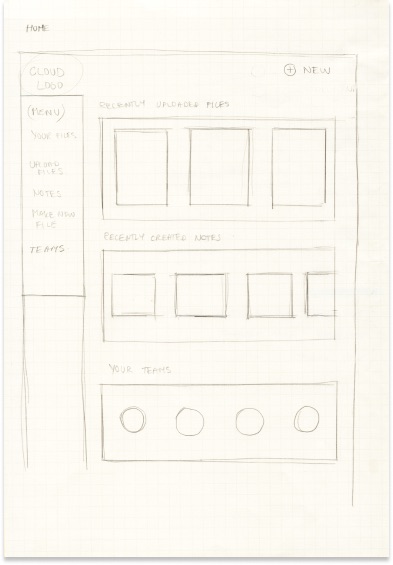 HOME
CLOUD
LOGO
+ NEW
(MENU)
YOUR FILES
UPLOAD
FILES
NOTES
MAKE NEW
FILE
TEAMS
RECENTLY UPLOADED FILES
RECENTLY CREATED NOTES
YOUR TEAMS